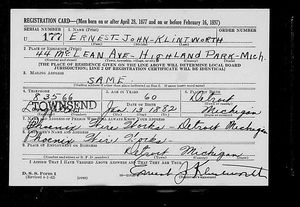 REGISTRATION CARD—(Men born on or after April 28, 1877 and on or before February 16, 1897)
SERIAL NUMBER 1. NAME (Print) ORDER NUMBER
U 177 ERNEST JOHN KLINTWORTH
2. PLACE OF RESIDENCE (Print)
44 McLEAN AVE - HIGHLAND PARK - Mich.
[THE PLACE OF RESIDENCE GIVEN ON THE LINE ABOVE WILL DETERMINE LOCAL BOARD
JURISDICTION; LINE 2 OF REGISTRATION CERTIFICATE WILL BE IDENTICAL]
3. MAILING ADDRESS
SAME
4. TELEPHONE 5. AGE IN YEARS 6. PLACE OF BIRTH
60 Detroit
TOWNSEND Jan 1882 Michigan
Phoenix Wire Works - Detroit Michigan
8. EMPLOYER'S NAME AND ADDRESS
Phoenix Wire Works
9. PLACE OF EMPLOYMENT OR BUSINESS
Detroit Michigan
I AFFIRM THAT I HAVE VERIFIED ABOVE ANSWERS AND THAT THEY ARE TRUE.
D. S. S. Form 1
(Revised 4-1-42) Ernest J. Klintworth